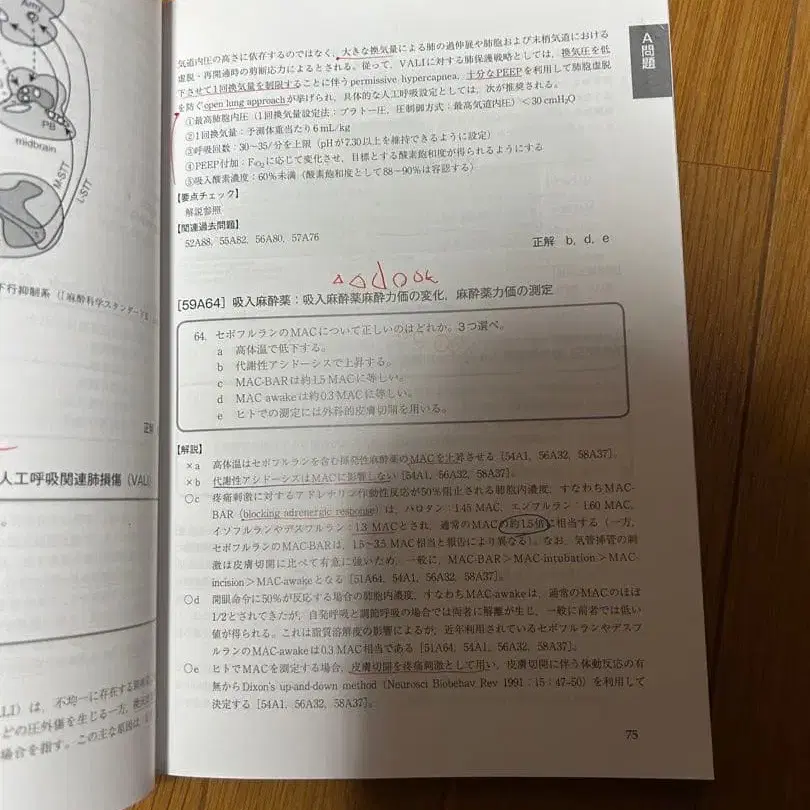 midbrain
PB
M-STT
L-STT
下行抑制系（『麻酔科学スタンダードⅡ
正解
人工呼吸関連肺損傷（VALI）
ALI）は，不均一に存在する
どの圧外傷を生じる一方，
場合を指す。この主な原因は
A問題
気道内圧の高さに依存するのではなく，大きな換気量による肺の過伸展や肺胞および末梢気道における
虚脱・再開通時の剪断応力によるとされる。従って，VALIに対する肺保護戦略としては，換気圧を低
下させて1回換気量を制限することに伴うpermissive hypercapnea，十分なPEEPを利用して肺胞虚脱
を防ぐopen lung approachが挙げられ，具体的な人工呼吸設定としては，次が推奨される。
①最高肺胞内圧（1回換気量設定法：プラトー圧，圧制御方式：最高気道内圧）＜30 cmH2O
②1回換気量：予測体重当たり6 mL/kg
③呼吸回数：30～35/分を上限（pHが7.30以上を維持できるように設定）
④PEEP付加：FIO2に応じて変化させ，目標とする酸素飽和度が得られるようにする
⑤吸入酸素濃度：60%未満（酸素飽和度として88～90%は容認する）
【要点チェック】
解説参照
【関連過去問題】
52A88，55A82，56A80，57A76
正解　b，d，e
[59A64] 吸入麻酔薬：吸入麻酔薬麻酔力価の変化，麻酔薬力価の測定
64. セボフルランのMACについて正しいのはどれか。3つ選べ。
a　高体温で低下する。
b　代謝性アシドーシスで上昇する。
c　MAC-BARは約1.5 MACに等しい。
d　MAC awakeは約0.3 MACに等しい。
e　ヒトでの測定には外科的皮膚切開を用いる。
【解説】
×a　高体温はセボフルランを含む揮発性麻酔薬のMACを上昇させる [54A1，56A32，58A37]。
×b　代謝性アシドーシスはMACに影響しない [54A1，56A32，58A37]。
○c　疼痛刺激に対するアドレナリン作動性反応が50%阻止される肺胞内濃度，すなわちMAC-
BAR（blocking adrenergic response）は，ハロタン：1.45 MAC，エンフルラン：1.60 MAC，
イソフルランやデスフルラン：1.3 MACとされ，通常のMACの約1.5倍に相当する（一方，
セボフルランのMAC-BARは，1.5～3.5 MAC相当と報告により異なる）。なお，気管挿管の刺
激は皮膚切開に比べて有意に強いため，一般に，MAC-BAR＞MAC-intubation＞MAC-
incision＞MAC-awakeとなる [51A64，54A1，56A32，58A37]。
○d　開眼命令に50%が反応する場合の肺胞内濃度，すなわちMAC-awakeは，通常のMACのほぼ
1/2とされてきたが，自発呼吸と調節呼吸の場合では両者に解離が生じ，一般に前者では低い
値が得られる。これは脂質溶解度の影響によるが，近年利用されているセボフルランやデスフ
ルランのMAC-awakeは0.3 MAC相当である [51A64，54A1，56A32，58A37]。
○e　ヒトでMACを測定する場合，皮膚切開を疼痛刺激として用い，皮膚切開に伴う体動反応の有
無からDixon's up-and-down method（Neurosci Biobehav Rev 1991；15：47-50）を利用して
決定する [54A1，56A32，58A37]。
75